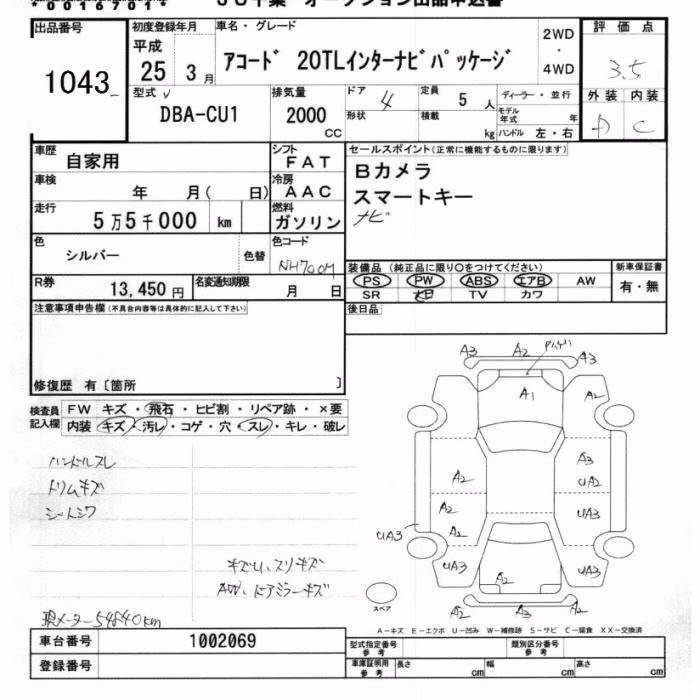 出品番号
1043
初度登録年月
平成
25 3月
車名・グレード
アコード 20TLインターナビパッケージ
2WD
・
4WD
評価点
3.5
外装 内装
D C
型式
DBA-CU1
排気量
2000
CC
ドア 4
形状
定員 5人
積載 kg
ディーラー・並行
モデル年式 年
ハンドル 左・右
車歴 自家用
シフト FAT
車検 年 月( 日)
冷房 AAC
走行 5万5千000 km
燃料 ガソリン
色 シルバー
色替
色コード NH700M
R券 13,450円
名変通知期限 月 日
セールスポイント(正常に機能するものに限ります)
Bカメラ
スマートキー
ナビ
装備品 (純正品に限り〇をつけてください)
PS PW ABS エアB AW
SR TV カワ
新車保証書
有・無
後日品
注意事項申告欄(不具合内容等は具体的に記入して下さい)
修復歴 有〔箇所 〕
検査員記入欄
FW キズ・飛石・ヒビ割・リペア跡・×要
内装 キズ・汚レ・コゲ・穴・スレ・キレ・破レ
ハンドルスレ
ドリムキズ
シートシワ
キズU、スリキズ
ドアミラーキズ
現メーター54840km
A3 A2 A3
A1
A2
A2 A3
UA2
A2 UA3
A2
UA3
UA3 UA3
A2
A2 A3 A2
スペア
A−キズ E−エクボ U−凹み W−補修跡 S−サビ C−腐食 XX−交換済
車台番号 1002069
登録番号
型式指定番号 参考
類別区分番号 参考
車庫証明用 参考
長さ cm 幅 cm 高さ cm